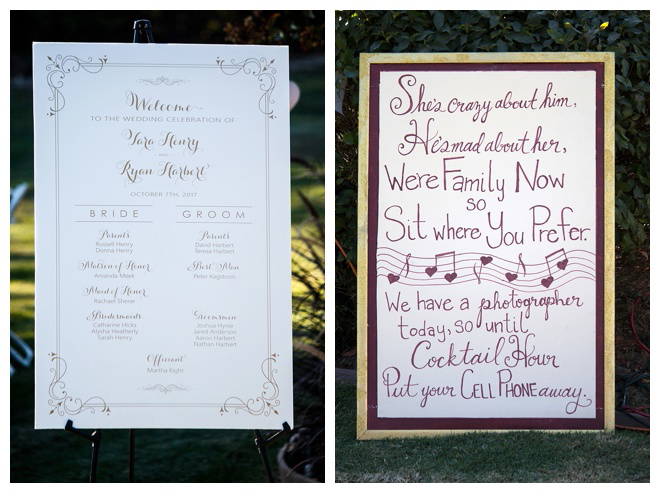 Welcome
TO THE WEDDING CELEBRATION OF
Yara Henry
AND
Ryan Harbert
OCTOBER 7TH, 2017
BRIDE
Parents
Russell Henry
Donna Henry
Matron of Honor
Amanda Meek
Maid of Honor
Rachael Sherer
Bridesmaids
Catharine Hicks
Alysha Heatherly
Sarah Henry
GROOM
Parents
David Harbert
Teresa Harbert
Best Man
Peter Kiegstrom
Groomsmen
Joshua Hynie
Jared Anderson
Aaron Harbert
Nathan Harbert
Officiant
Martha Kight
She's crazy about him,
He's mad about her,
Were Family Now
so
Sit where You Prefer.
We have a photographer
today, so until
Cocktail Hour
Put your CELL PHONE away.